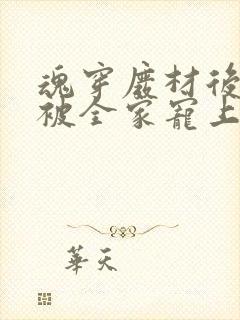 魂穿廢材後
被全家寵上
華天